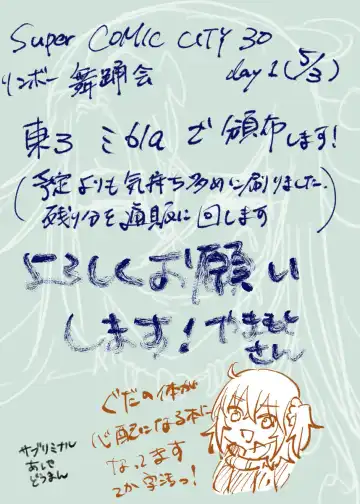 Super COMIC CITY 30
リンボー 舞踊会 day1(5/3)
東3 ミ61a で頒布します!
(予定よりも気持ち多めに刷りました。
残り分を通販に回します)
よろしくお願い
します!やまもと
さん
ぐだの体が
心配になる本に
なってます
てか字汚っ!
サブリミナル
あしや
どうまん